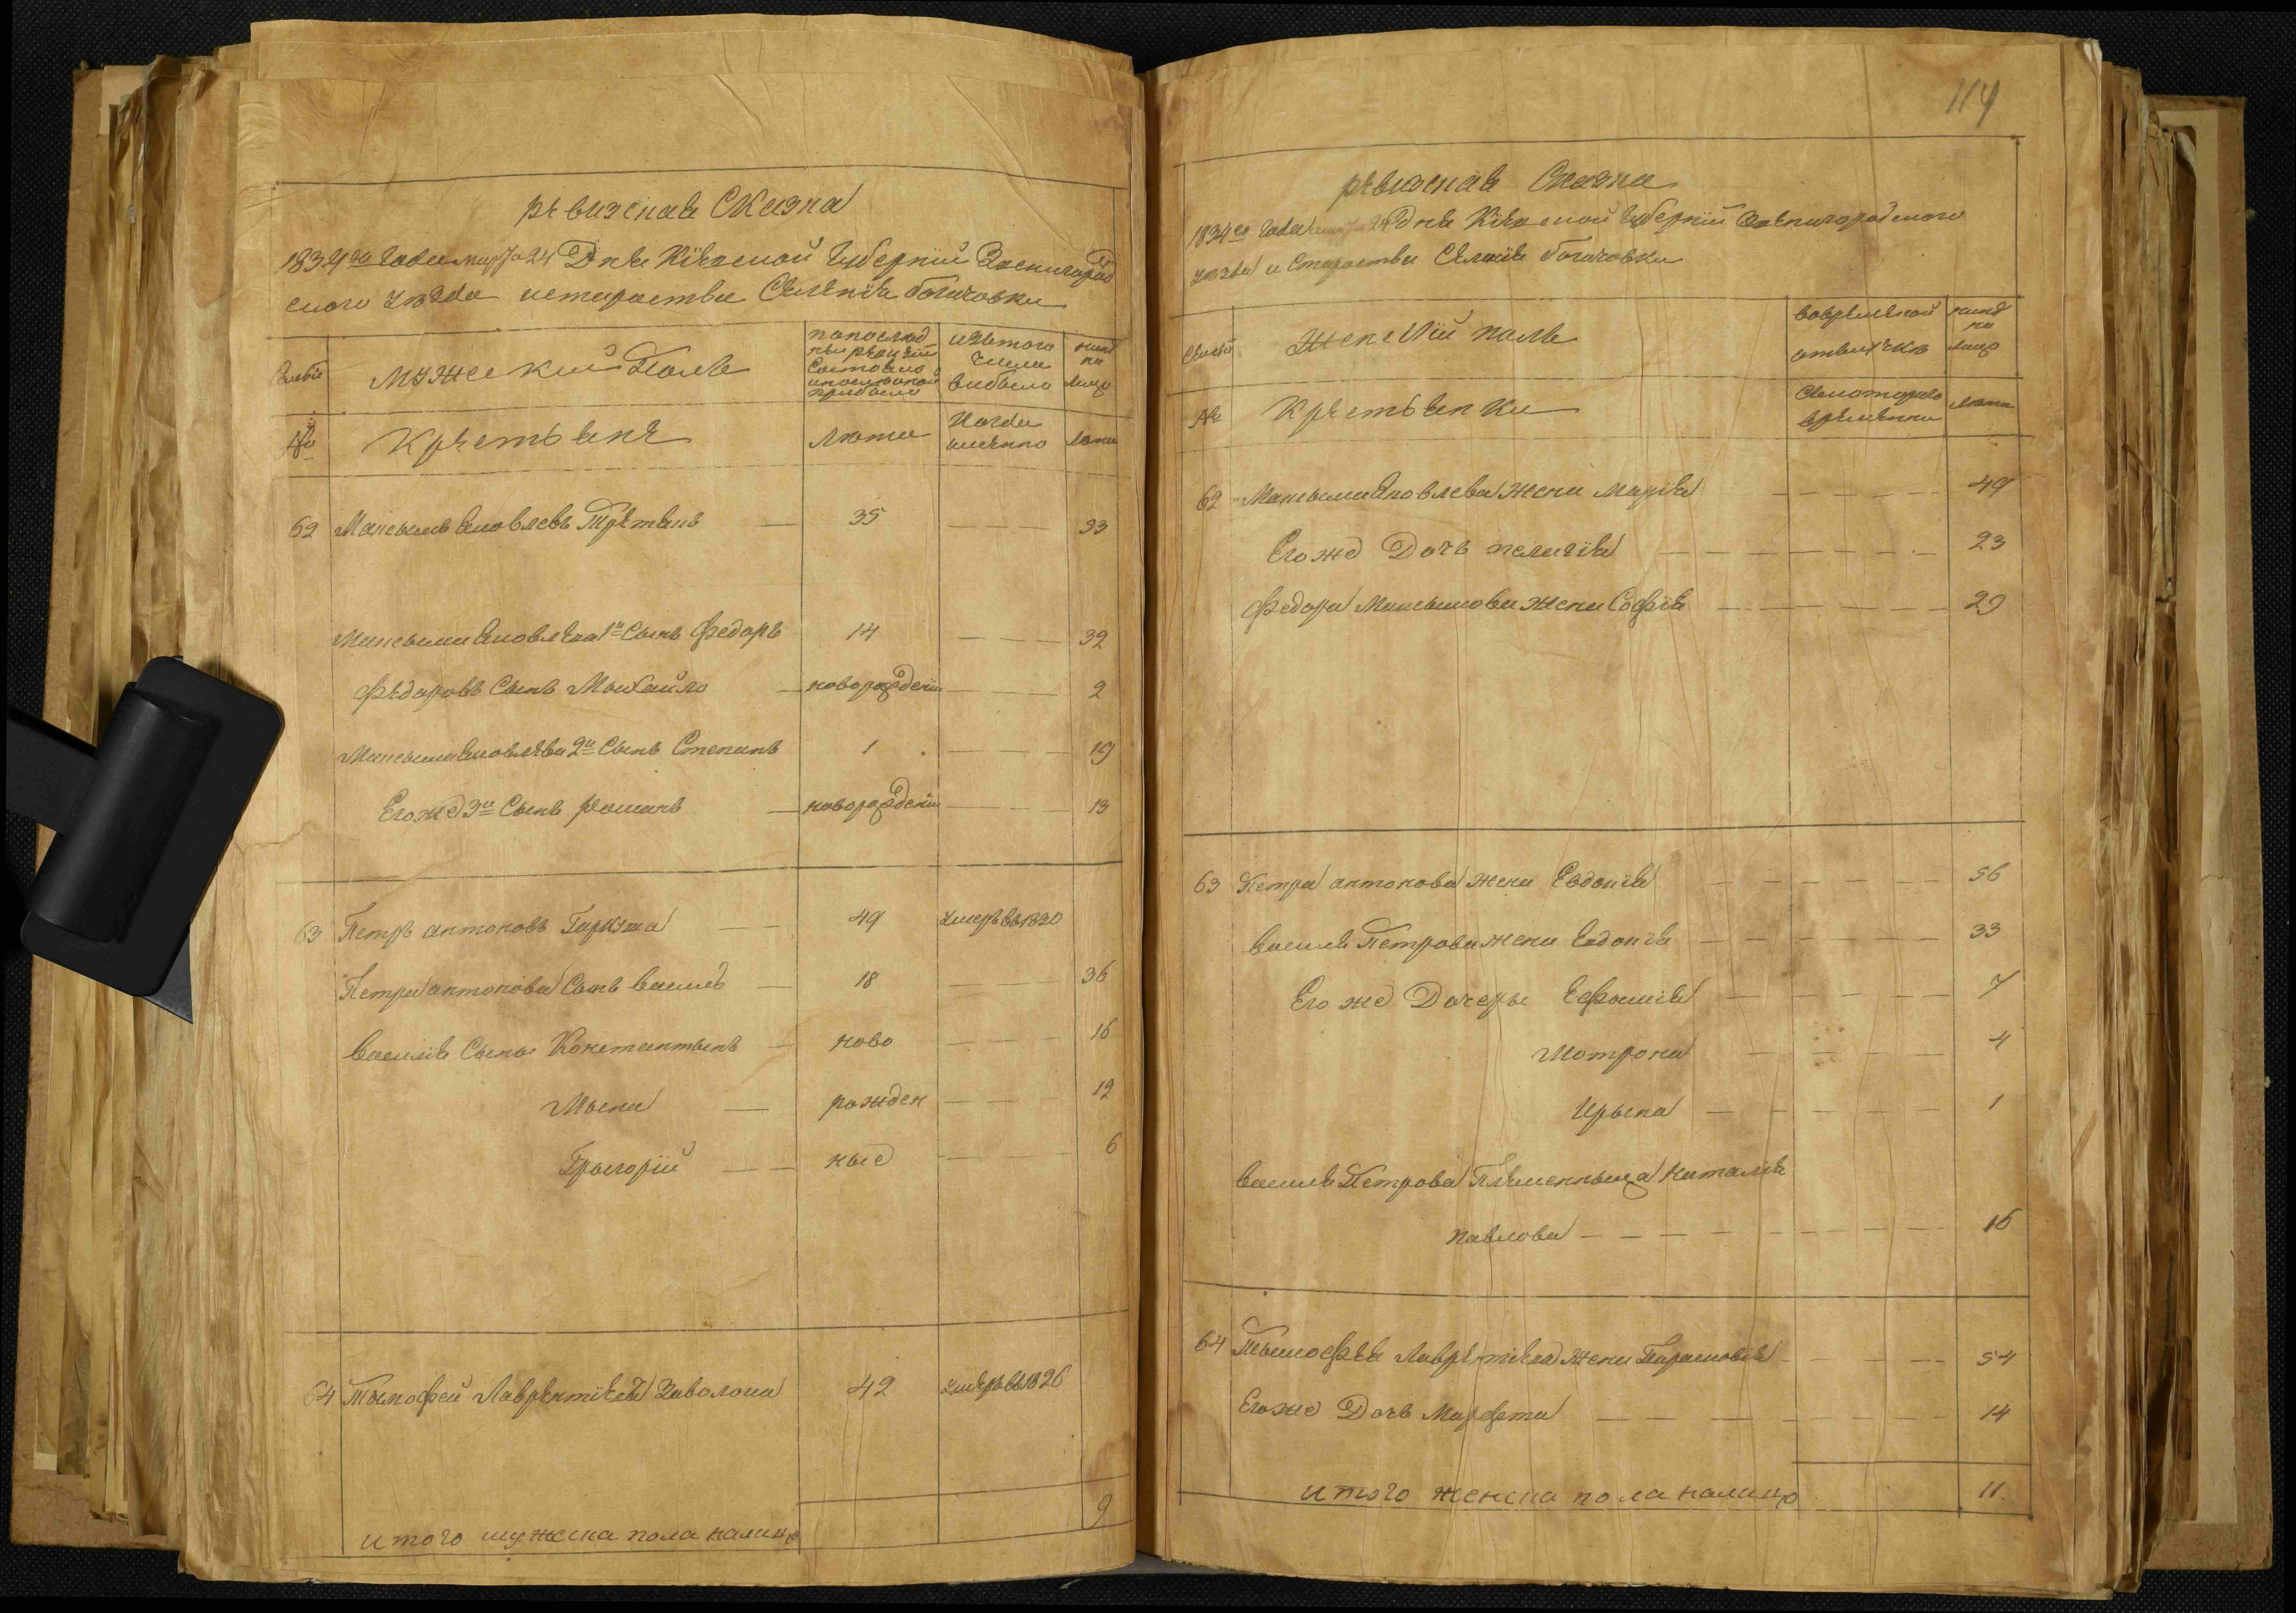 ревизская Сказка
1834го Года марта 24 Дня Кіевской Губерніи Звенигород
ского уезда и староства Селенія богачовки
Семьи
мужеский Поль
по последней ревизіи Состояло и после оной прибыло
изътого Числа выбыло
ныне на лицо
№
Крестьяне
Лета
Когда именно
Лета
62 Максымъ Яковлевъ Третякъ — 35 — — — 53
Максыма Яковлева 1й Сынъ Федоръ 14 — — — 32
Федоровъ Сынъ Мыхайло — новорожденій — — — 2
Максыма Яковлева 2й Сынъ Степанъ 1 — — — 19
Егоже 3й Сынъ Романъ — новорожденій — — — 13
63 Петръ антоновъ Гаркуша — 49 умеръ въ 1820
Петра антонова Сынъ Василь — 18 — — 36
Василія Сыны Константынъ — ново — — — 16
Мына — рожден — — 12
Грыгорій — ные — — 6
64 Тымофей Лаврентіевъ Заволока 42 умеръ въ 1826
итого мужеска пола налицо 9
114
ревизская Сказка
1834го Года марта 24 Дня Кіевской Губерніи Звенигородского
уезда и Староства Селенія богачовки
Семьи
Женскій полъ
вовременной отлучке
ныне на лицо
№
Крестьянки
Скоторого времени
Лета
62 Максыма Яковлева жена Марія — — — — 49
Егоже Дочь пелагія — — — — — — 23
Федора Максымова жена Софія — — — — — 29
63 Петра антонова жена Евдокія — — — — — 56
василя Петрова жена Евдокія — — — — — 33
Егоже Дочеры Ефымія — — — — — 7
Мотрона — — — — 4
Ирына — — — — — 1
василя Петрова Племенныца Наталія
павлова — — — — — — — 16
64 Тымофея Лаврентіева жена Параскевія — — — — 54
Егоже Дочь Марфта — — — — — — — 14
итого женска пола налицо 11